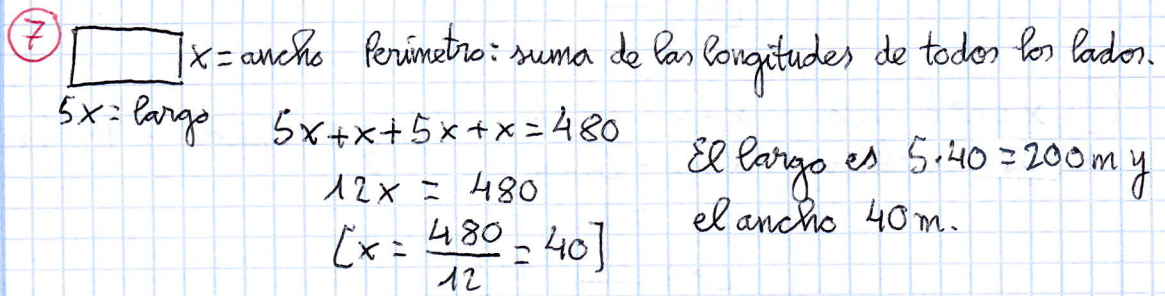 7
x = ancho Perímetro: suma de las longitudes de todos los lados.
5x = largo
5x + x + 5x + x = 480
12x = 480
[x = 480/12 = 40]
El largo es 5·40 = 200 m y
el ancho 40 m.